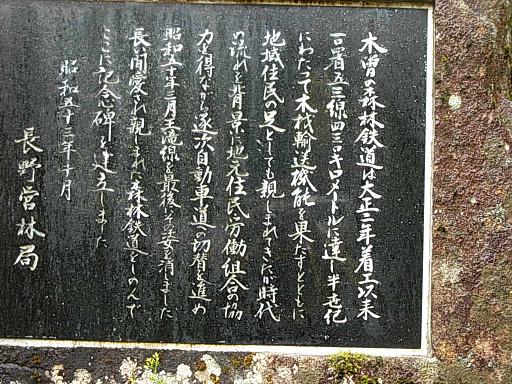 木曽の森林鉄道は大正二年着工以来
一〇署五三線四三〇キロメートルに達し半世紀
にわたって木材輸送機能を果たすとともに
地域住民の足としても親しまれてきたが時代
の流れを背景に地元住民労働組合の協
力を得ながら逐次自動車道への切替を進め
昭和五十年三月王滝線を最後にその姿を消しました
長い間愛され親しまれた森林鉄道をしのんで
ここに記念碑を建立しました
昭和五十三年十月
長野営林局